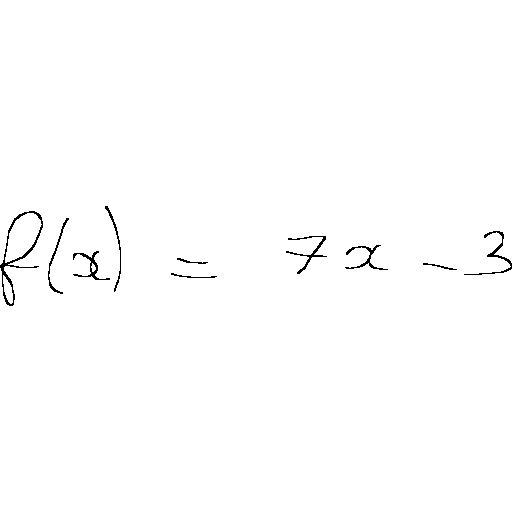 f(x) = 7x - 3